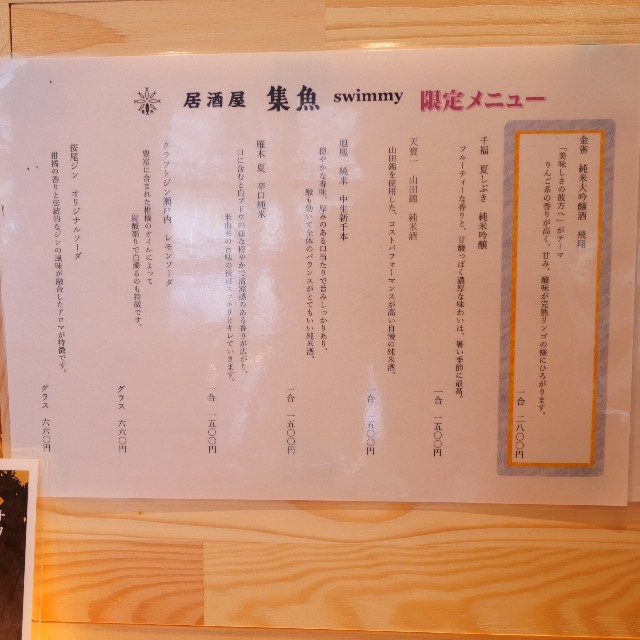 居酒屋 集魚 swimmy 限定メニュー
金雀 純米大吟醸酒 飛翔
「美味しさの彼方へ」がテーマ
りんご系の香りが高く、甘み、酸味が完熟リンゴの様にひろがります。
一合 二八〇〇円
千福 夏しぶき 純米吟醸
フルーティーな香りと、甘酸っぱく濃厚な味わいは、暑い季節に最高。
一合 一五〇〇円
天寶一 山田錦 純米酒
山田錦を使用した、コストパフォーマンスが高い自慢の純米酒。
一合 一五〇〇円
旭鳳 純米 中生新千本
穏やかな香味、厚みのある口当たりで旨みしっかりあり、
酸も効いて全体のバランスがとてもいい純米酒。
一合 一五〇〇円
雁木 夏 辛口純米
口に含むと白ブドウの様な穏やかで清涼感のある香りが広がり、
米由来の旨味の後はスッキリとキレていきます。
一合 一五〇〇円
クラフトジン瀬戸内 レモンソーダ
豊富に含まれた柑橘のオイルによって
炭酸割りで白濁するのも特徴です。
グラス 六六〇円
桜尾ジン オリジナルソーダ
柑橘の香りと伝統的なジンの風味が融合したアロマが特徴です。
グラス 六六〇円